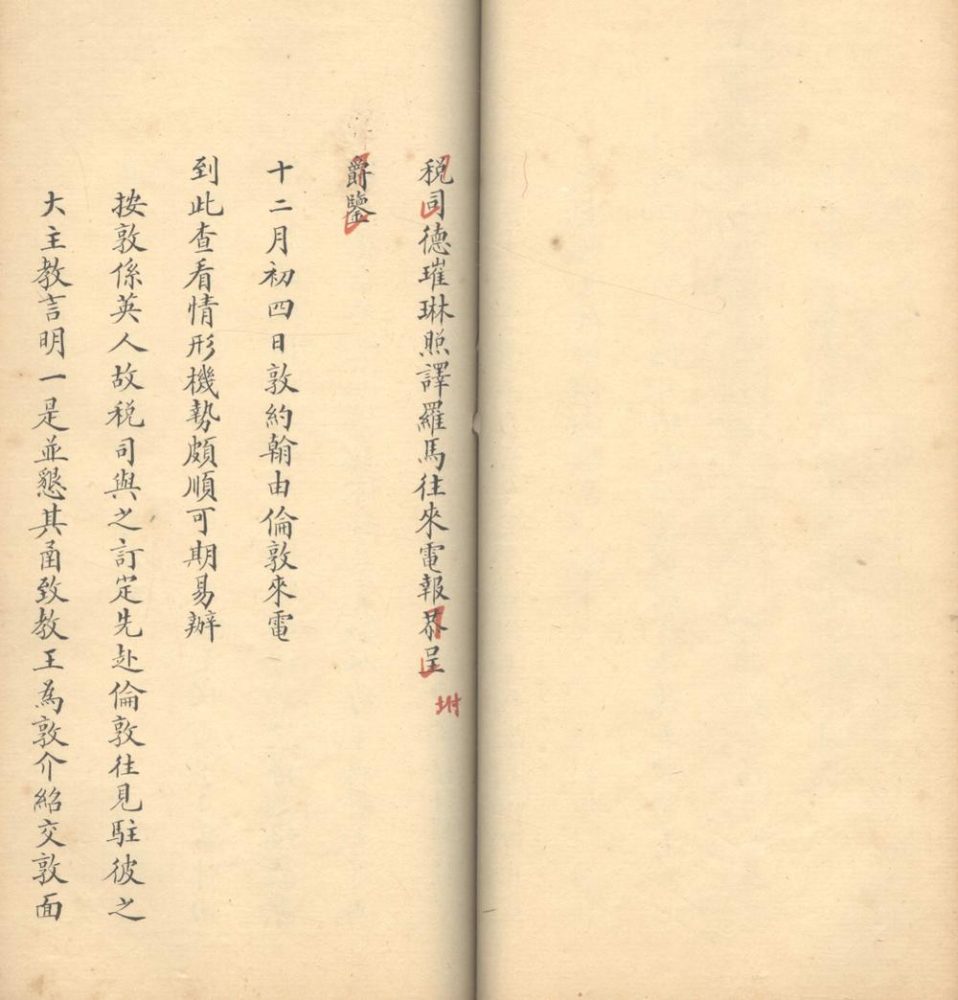 税司德璀琳照譯羅馬往來電報恭呈
附
爵鑒
十二月初四日敦約翰由倫敦來電
到此查看情形機勢頗順可期易辦
按敦係英人故税司與之訂定先赴倫敦往見駐彼之
大主教言明一是並懇其函致教王為敦介紹交敦面